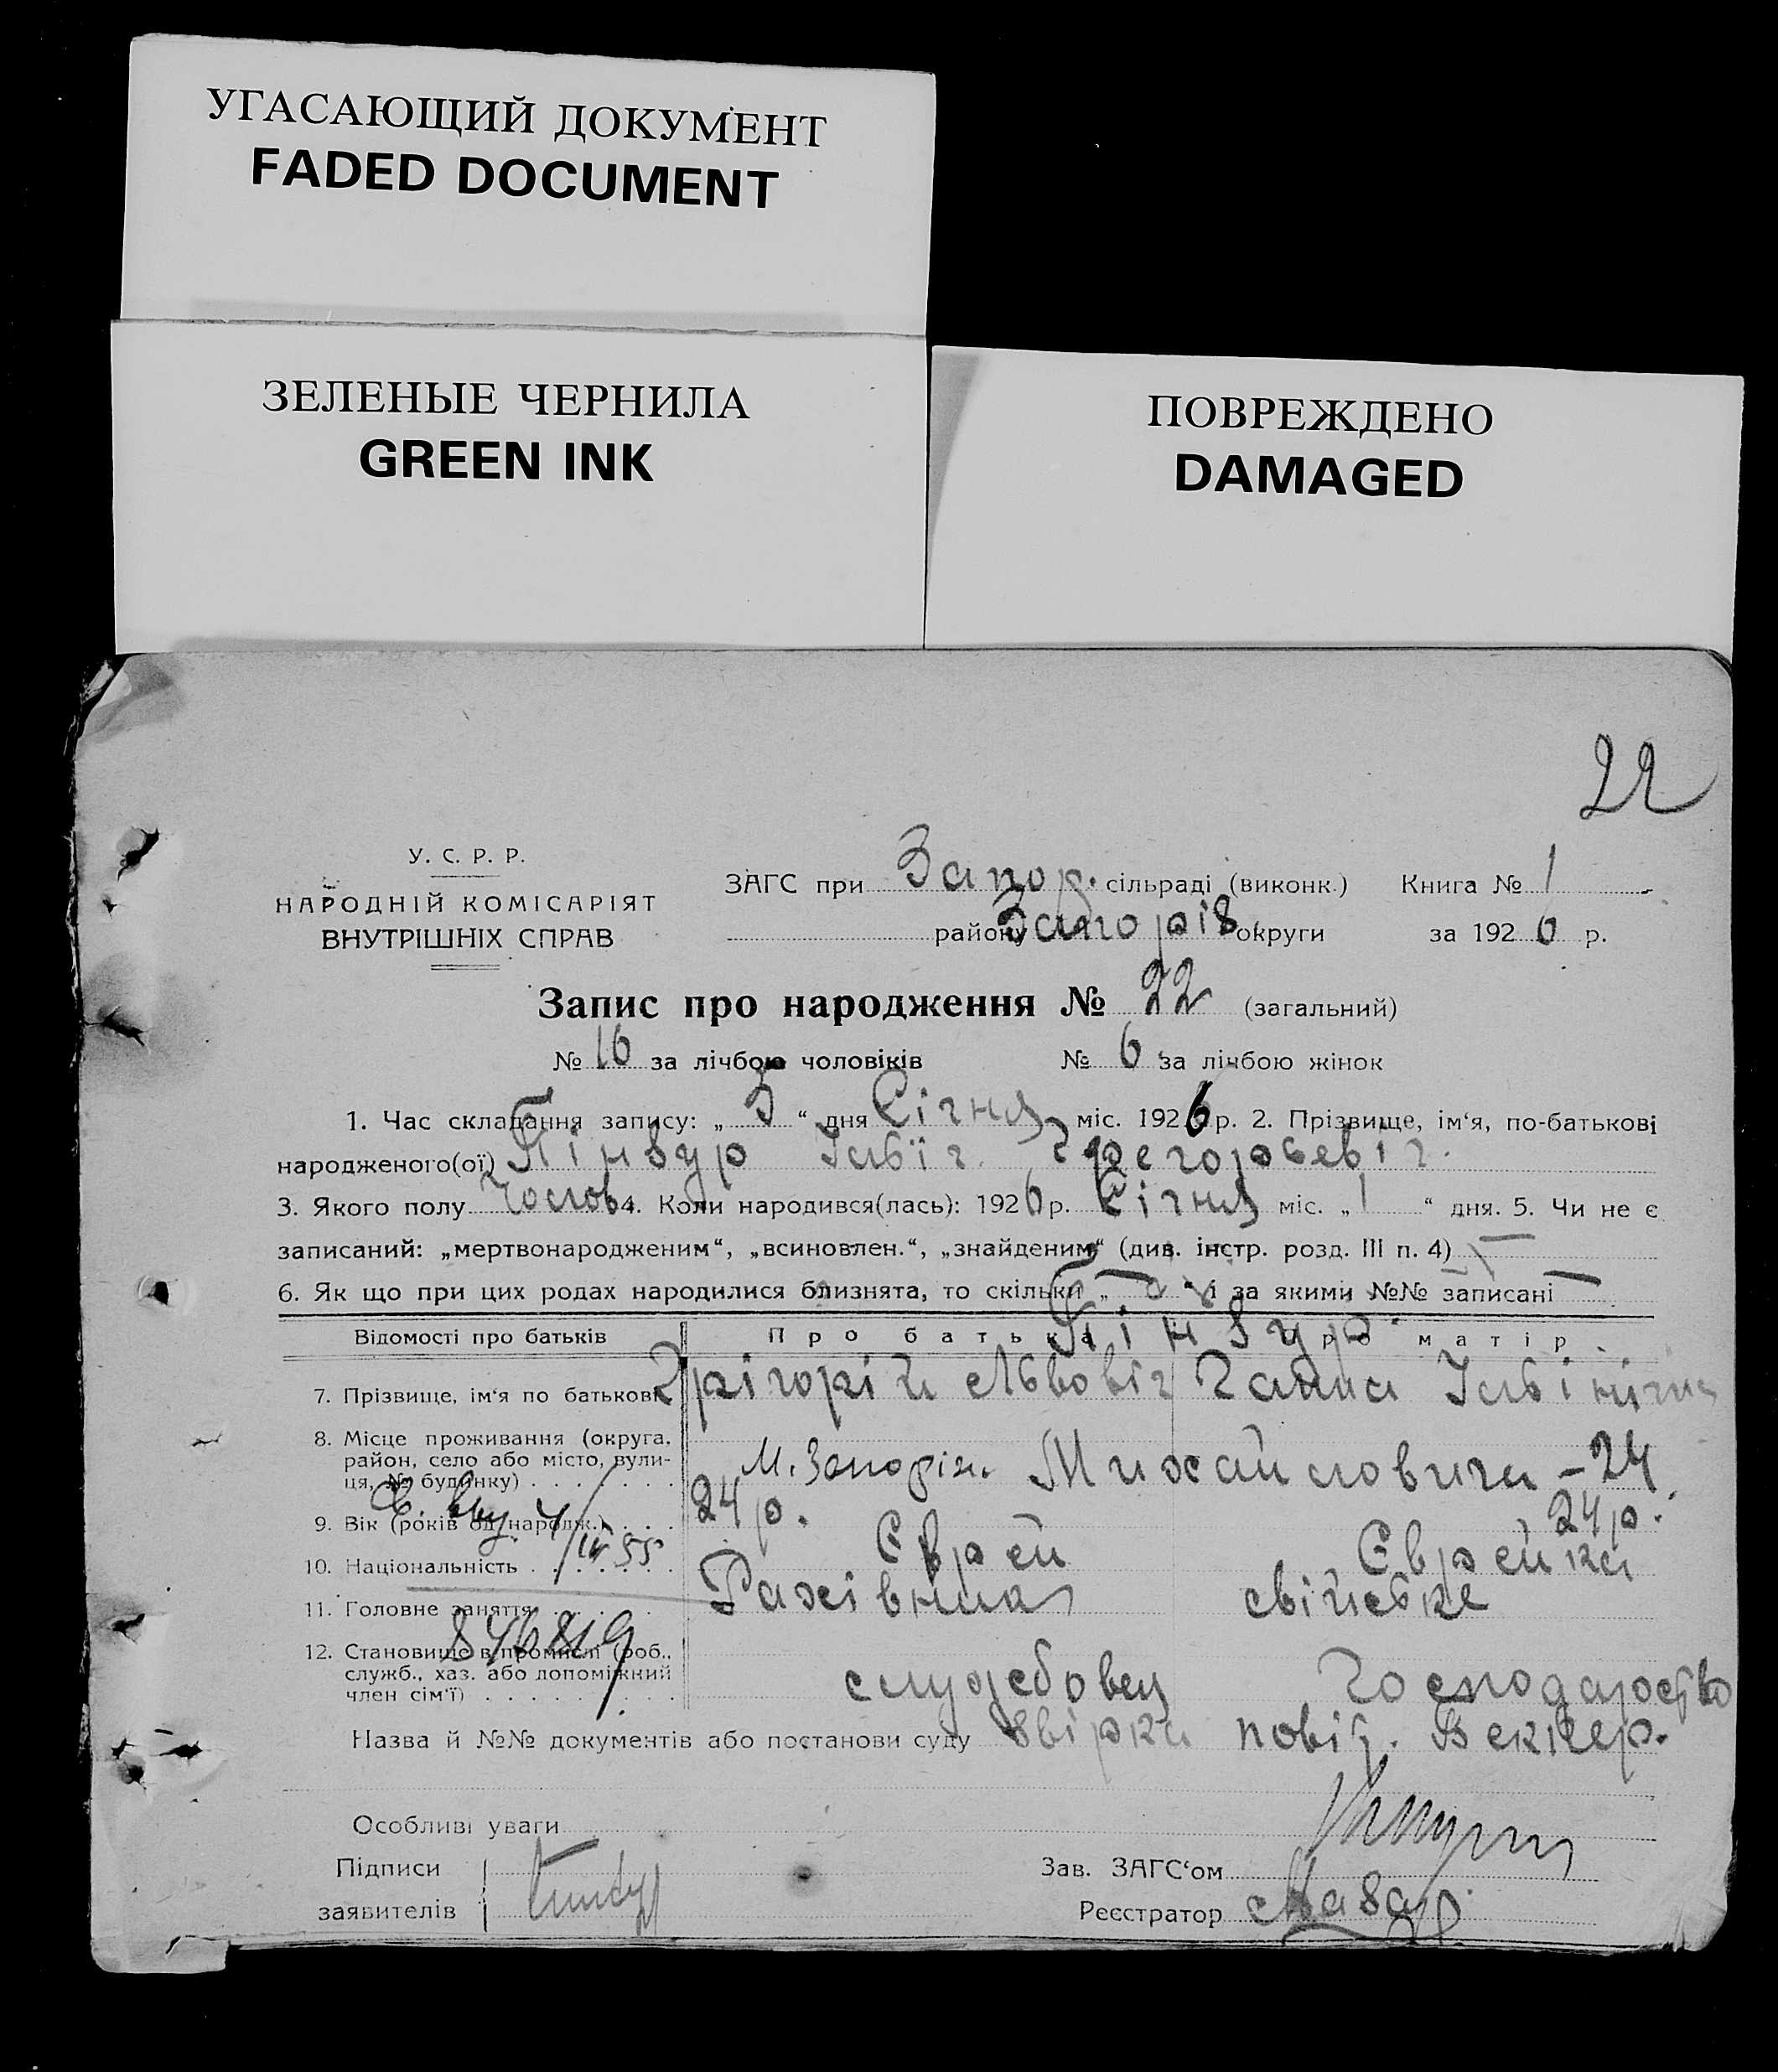 УГАСАЮЩИЙ ДОКУМЕНТ
FADED DOCUMENT
ЗЕЛЕНЫЕ ЧЕРНИЛА
GREEN INK
ПОВРЕЖДЕНО
DAMAGED
22
У. С. Р. Р.
НАРОДНІЙ КОМІСАРІЯТ
ВНУТРІШНІХ СПРАВ
ЗАГС при Запор. сільраді (виконк.) Книга № 1
району Запоріз. округи за 1926 р.
Запис про народження № 22 (загальний)
№ 16 за лічбою чоловіків № 6 за лічбою жінок
1. Час складання запису: „ 5 “ дня Січня міс. 1926 р. 2. Прізвище, ім‘я, по-батькові
народженого(ої) Пінзур Грегорьевіч.
3. Якого полу Чолов 4. Коли народився(лась): 1926 р. Січня міс. „ 1 “ дня. 5. Чи не є
записаний: „мертвонародженим“, „всиновлен.“, „знайденим“ (див. інстр. розд. III п. 4) —
6. Як що при цих родах народилися близнята, то скільки „ — “ і за якими №№ записані —
Відомості про батьків Про батька Пінзур Про матір
7. Прізвище, ім‘я по батькові Грігорій Львовіч Ганна
8. Місце проживання (округа, район, село або місто, вули-ця, № будинку) М. Запоріж. Михайловича – 24
9. Вік (років од народж.) 24 р. 24 р.
10. Національність Єврей Єврейка
11. Головне заняття Рахівник свійське
12. Становище в промислі (роб., служб., хаз. або допоміжний член сім‘ї) службовец господарство
84б819
Назва й №№ документів або постанови суду звірка повід. Веккер.
Особливі уваги
Підписи
заявителів
Зав. ЗАГС‘ом
Реєстратор Мазар